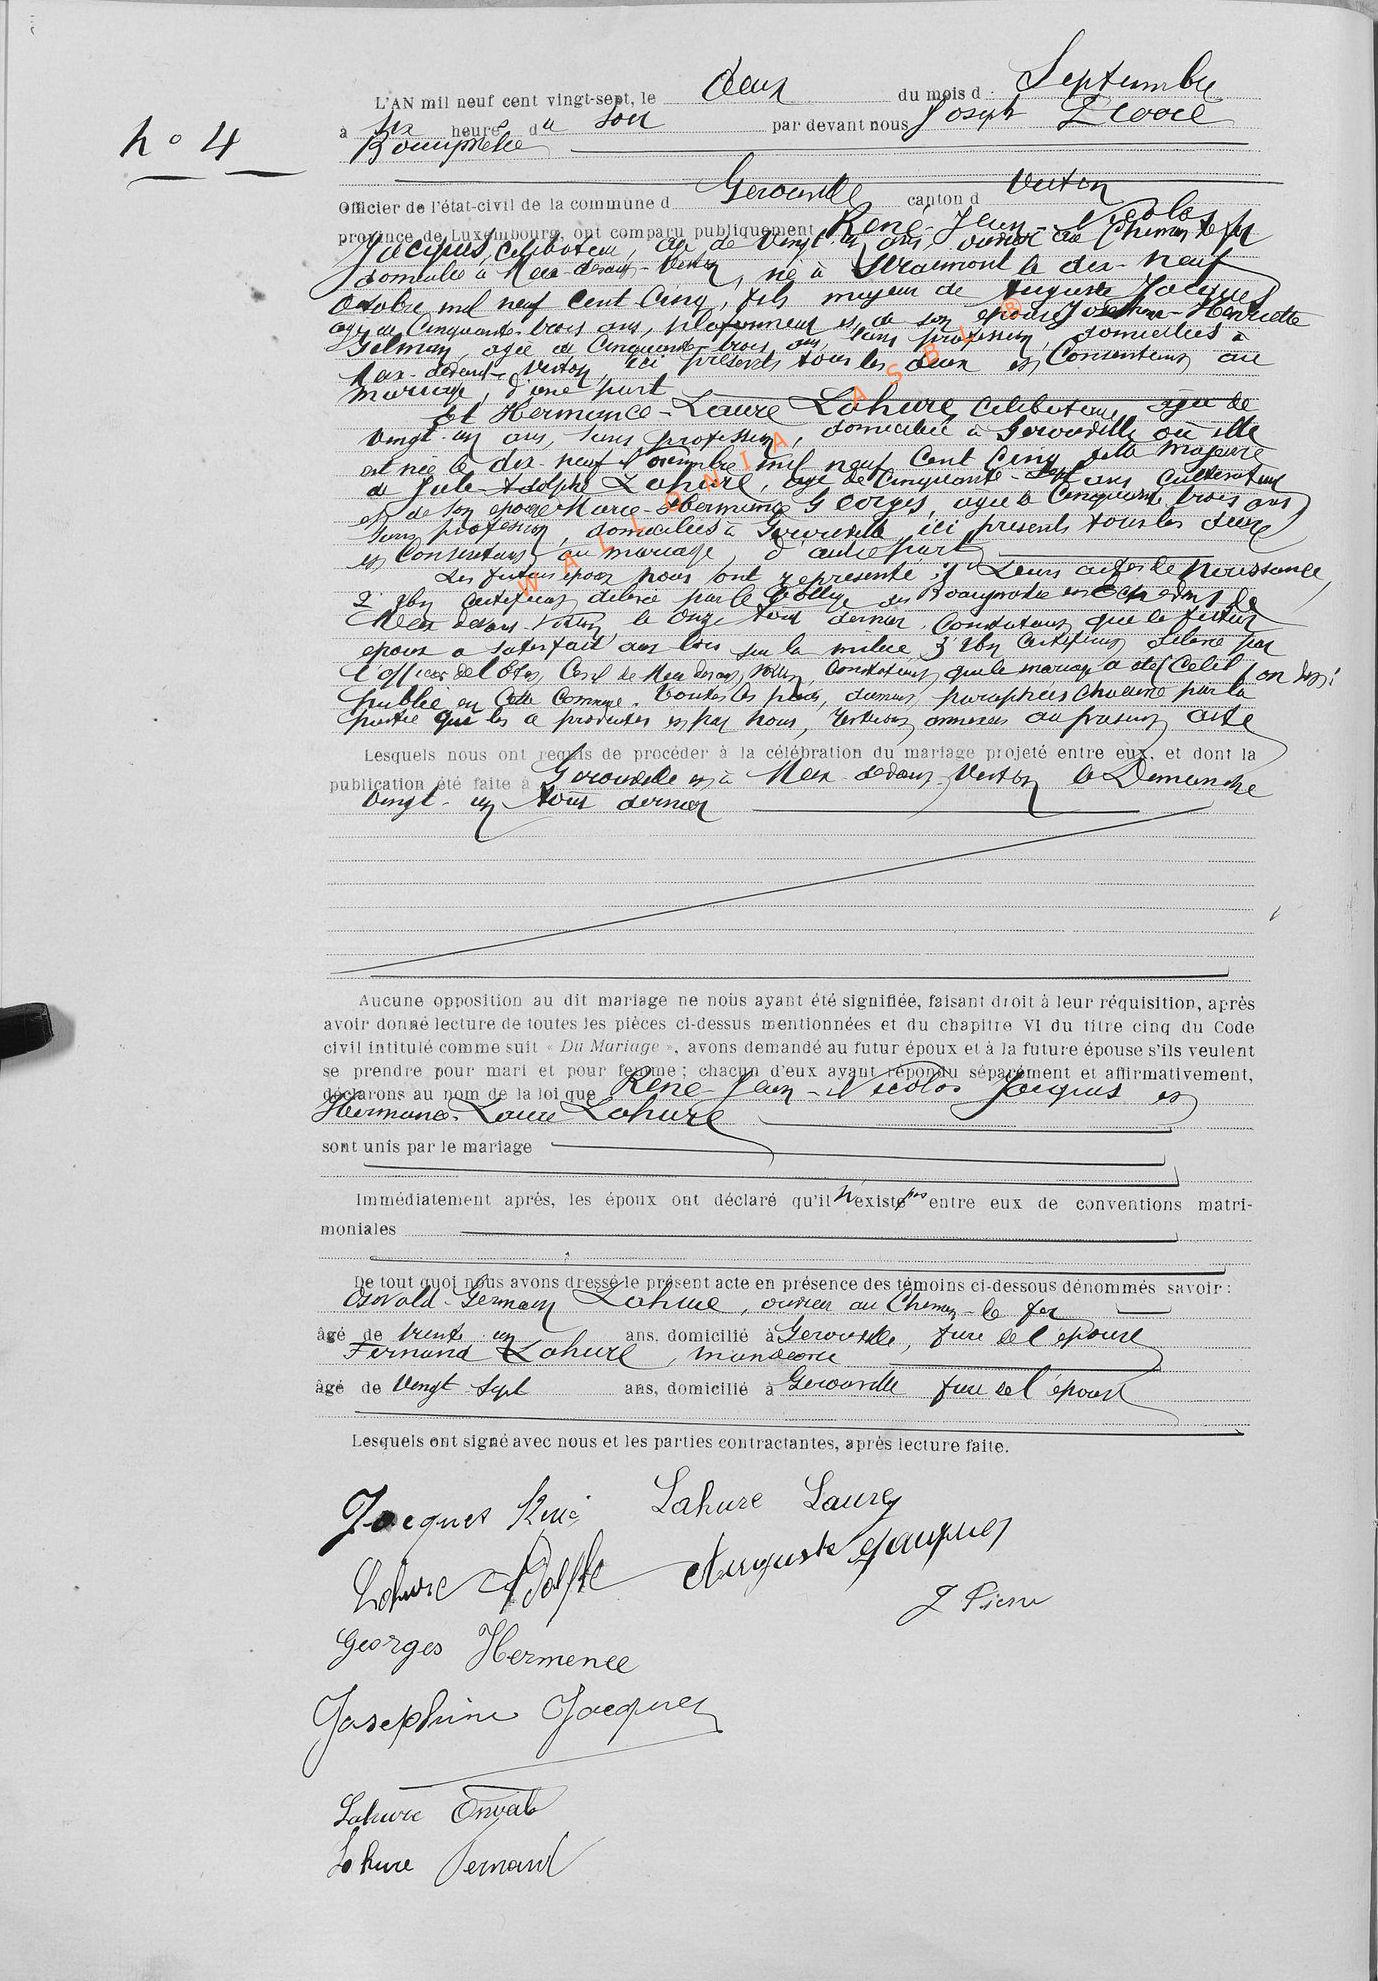 n° 4
L'AN mil neuf cent vingt-sept, le deux du mois d Septembre
à six heures du soir par devant nous Joseph
Bourgmestre
Officier de l'état-civil de la commune d Gerouville canton d Virton
province de Luxembourg, ont comparu publiquement René-Jean-Nicolas
Jacques, célibataire, agé de vingt un ans, ouvrier au Chemin de fer
domicilié à Meix-devant-Virton, né à le dix-neuf
Octobre mil neuf cent cinq, fils majeur de Auguste Jacques
agé de Cinquante-trois ans, plafonneur et de son épouse Joséphine-Henriette
agée de Cinquante trois ans, sans profession, domiciliés à
Meix-devant-Virton, ici présents tous les deux et Consentant au
mariage, d'une part
Et Hermance-Laure Lahure célibataire agée de
vingt-un ans, sans profession, domiciliée à Gerouville où elle
est née le dix-neuf Novembre mil neuf Cent Cinq, fille majeure
de Jule-Adolphe Lahure, agé de Cinquante-sept ans Cultivateur
et de son épouse Marie-Hermance Georges, agée de Cinquante trois ans
sans profession, domiciliés à Gerouville ici présents tous les deux
et Consentant au mariage, d'autre part
Les futurs époux nous ont représenté : 1° Leurs actes de Naissance,
2° Un Certificat délivré par le Collège des Bourgmestre et Echevins de
Meix devant Virton, le onze Août dernier, Constatant que le futur
époux a satisfait aux lois sur la milice 3° Un Certificat délivré par
l'officier de l'Etat Civil de Meix devant Virton, Constatant que le mariage a été
publié en Cette Commune. Toutes les pièces, paraphées Chacune par la
partie qui les a produites et par nous, resteront annexées au présent acte
Lesquels nous ont requis de procéder à la célébration du mariage projeté entre eux, et dont la
publication été faite à Gerouville et à Meix-devant-Virton le Dimanche
vingt-un Août dernier
Aucune opposition au dit mariage ne nous ayant été signifiée, faisant droit à leur réquisition, après
avoir donné lecture de toutes les pièces ci-dessus mentionnées et du chapitre VI du titre cinq du Code
civil intitulé comme suit « Du Mariage », avons demandé au futur époux et à la future épouse s'ils veulent
se prendre pour mari et pour femme ; chacun d'eux ayant répondu séparément et affirmativement,
déclarons au nom de la loi que René-Jean-Nicolas Jacques et
Hermance-Laure Lahure
sont unis par le mariage
Immédiatement après, les époux ont déclaré qu'il n'existe pas entre eux de conventions matri-
moniales
De tout quoi nous avons dressé le présent acte en présence des témoins ci-dessous dénommés savoir :
Osvald-Germain Lahure, ouvrier au Chemin de fer
âgé de trente un ans, domicilié à Gerouville, frère de l'épouse
Fernand Lahure,
âgé de vingt sept ans, domicilié à Gerouville frère de l'épouse
Lesquels ont signé avec nous et les parties contractantes, après lecture faite.
Jacques René Lahure Laure
Lahure Adolphe Auguste Jacques
Georges Hermence
Josephine Jacques
Lahure Osvald
Lahure Fernand
WALLONIA ASBL ®